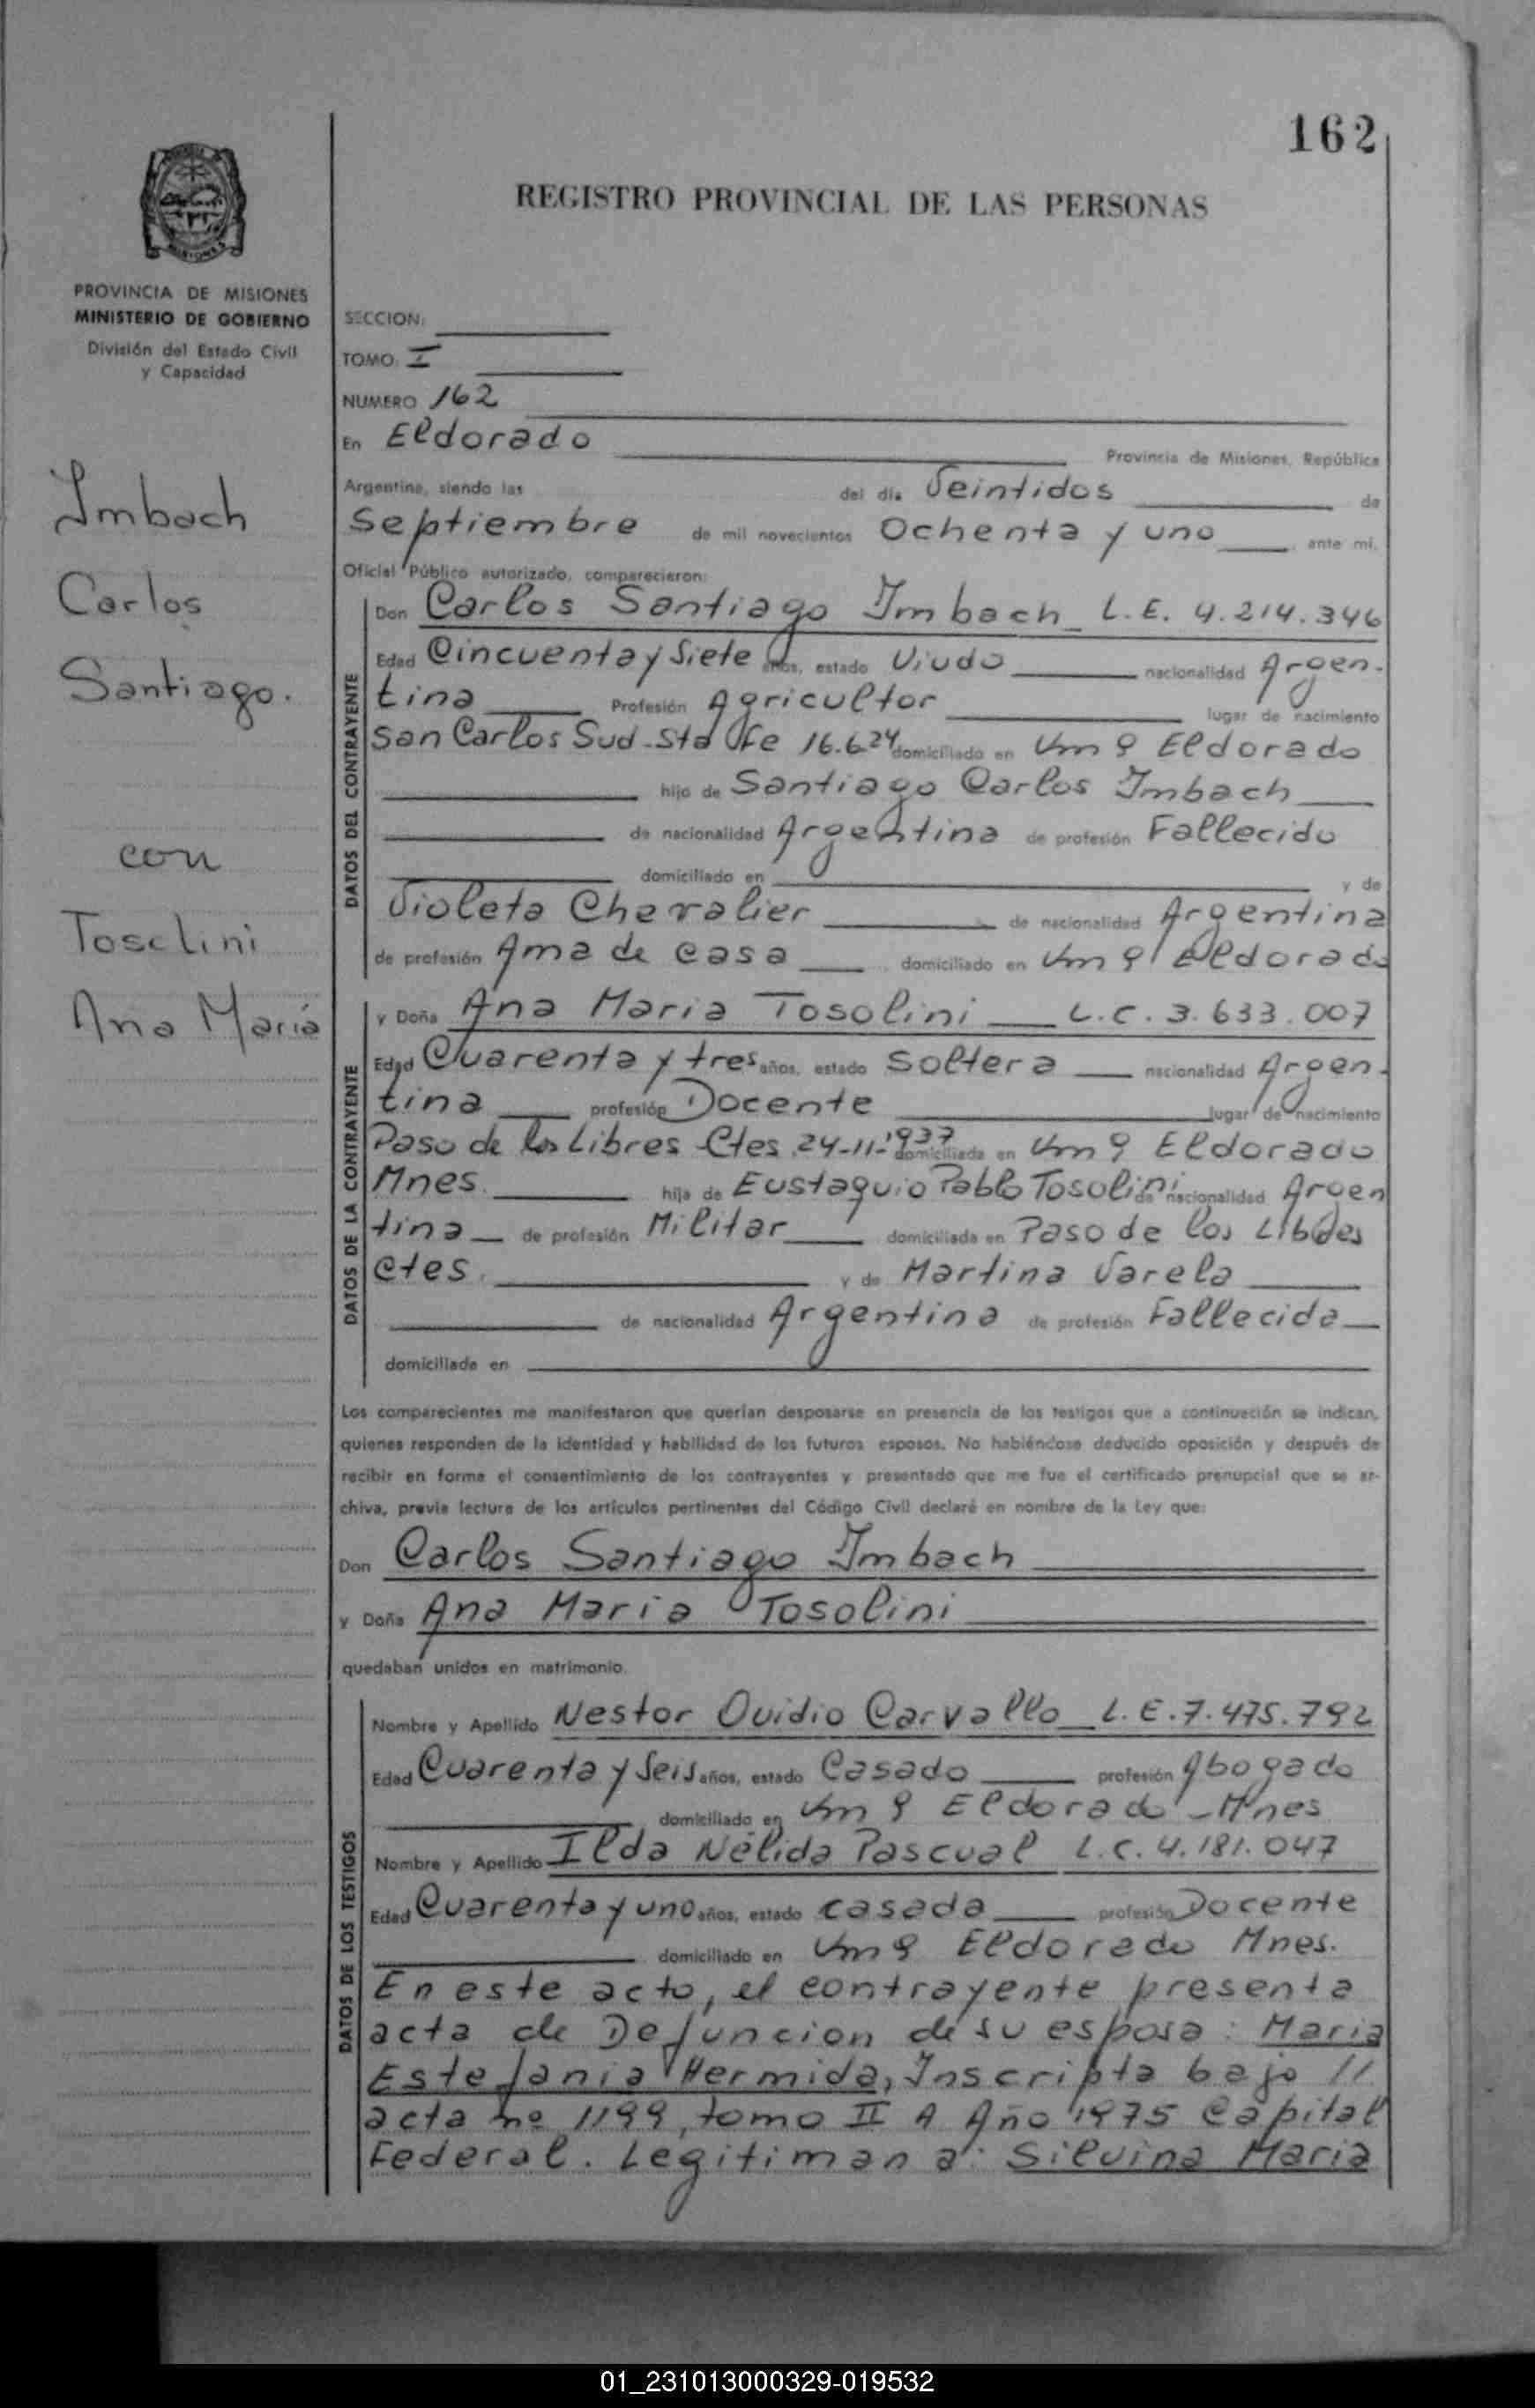 162
REGISTRO PROVINCIAL DE LAS PERSONAS
MISIONES
PROVINCIA DE MISIONES
MINISTERIO DE GOBIERNO
División del Estado Civil
y Capacidad
Imbach
Carlos
Santiago.
con
Tosolini
Ana María
SECCION:
TOMO: I
NUMERO 162
En Eldorado Provincia de Misiones, República
Argentina, siendo las del día Veintidos de
Septiembre de mil novecientos Ochenta y uno ante mí,
Oficial Público autorizado, comparecieron:
DATOS DEL CONTRAYENTE
Don Carlos Santiago Imbach L.E. 4.214.346
Edad Cincuenta y Siete años, estado Viudo nacionalidad Argen-
tina Profesión Agricultor lugar de nacimiento
San Carlos Sud-Sta Fe 16.6.24 domiciliado en Km 9 Eldorado
hijo de Santiago Carlos Imbach
de nacionalidad Argentina de profesión Fallecido
domiciliado en y de
Violeta Chevalier de nacionalidad Argentina
de profesión Ama de casa domiciliado en Km 9 Eldorado
DATOS DE LA CONTRAYENTE
y Doña Ana Maria Tosolini L.C. 3.633.007
Edad Cuarenta y tres años, estado Soltera nacionalidad Argen-
tina profesión Docente lugar de nacimiento
Paso de los Libres Ctes. 24-11-1937 domiciliada en Km 9 Eldorado
Mnes. hija de Eustaquio Pablo Tosolini de nacionalidad Argen
tina de profesión Militar domiciliada en Paso de los Libres
Ctes. y de Martina Varela
de nacionalidad Argentina de profesión Fallecida
domiciliada en
Los comparecientes me manifestaron que querían desposarse en presencia de los testigos que a continuación se indican,
quienes responden de la identidad y habilidad de los futuros esposos. No habiéndose deducido oposición y después de
recibir en forma el consentimiento de los contrayentes y presentado que me fue el certificado prenupcial que se ar-
chiva, previa lectura de los artículos pertinentes del Código Civil declaré en nombre de la Ley que:
Don Carlos Santiago Imbach
y Doña Ana Maria Tosolini
quedaban unidos en matrimonio.
DATOS DE LOS TESTIGOS
Nombre y Apellido Nestor Ovidio Carvallo L.E. 7.475.792
Edad Cuarenta y Seis años, estado Casado profesión Abogado
domiciliado en Km 9 Eldorado - Mnes
Nombre y Apellido Ilda Nélida Pascual L.C. 4.181.047
Edad Cuarenta y uno años, estado casada profesión Docente
domiciliado en Km 9 Eldorado Mnes.
En este acto, el contrayente presenta
acta de Defuncion de su esposa: Maria
Estefania Hermida, Inscripta bajo
acta nº 1199, tomo II A Año 1975 Capital
Federal. Legitiman a: Silvina Maria
01_231013000329-019532